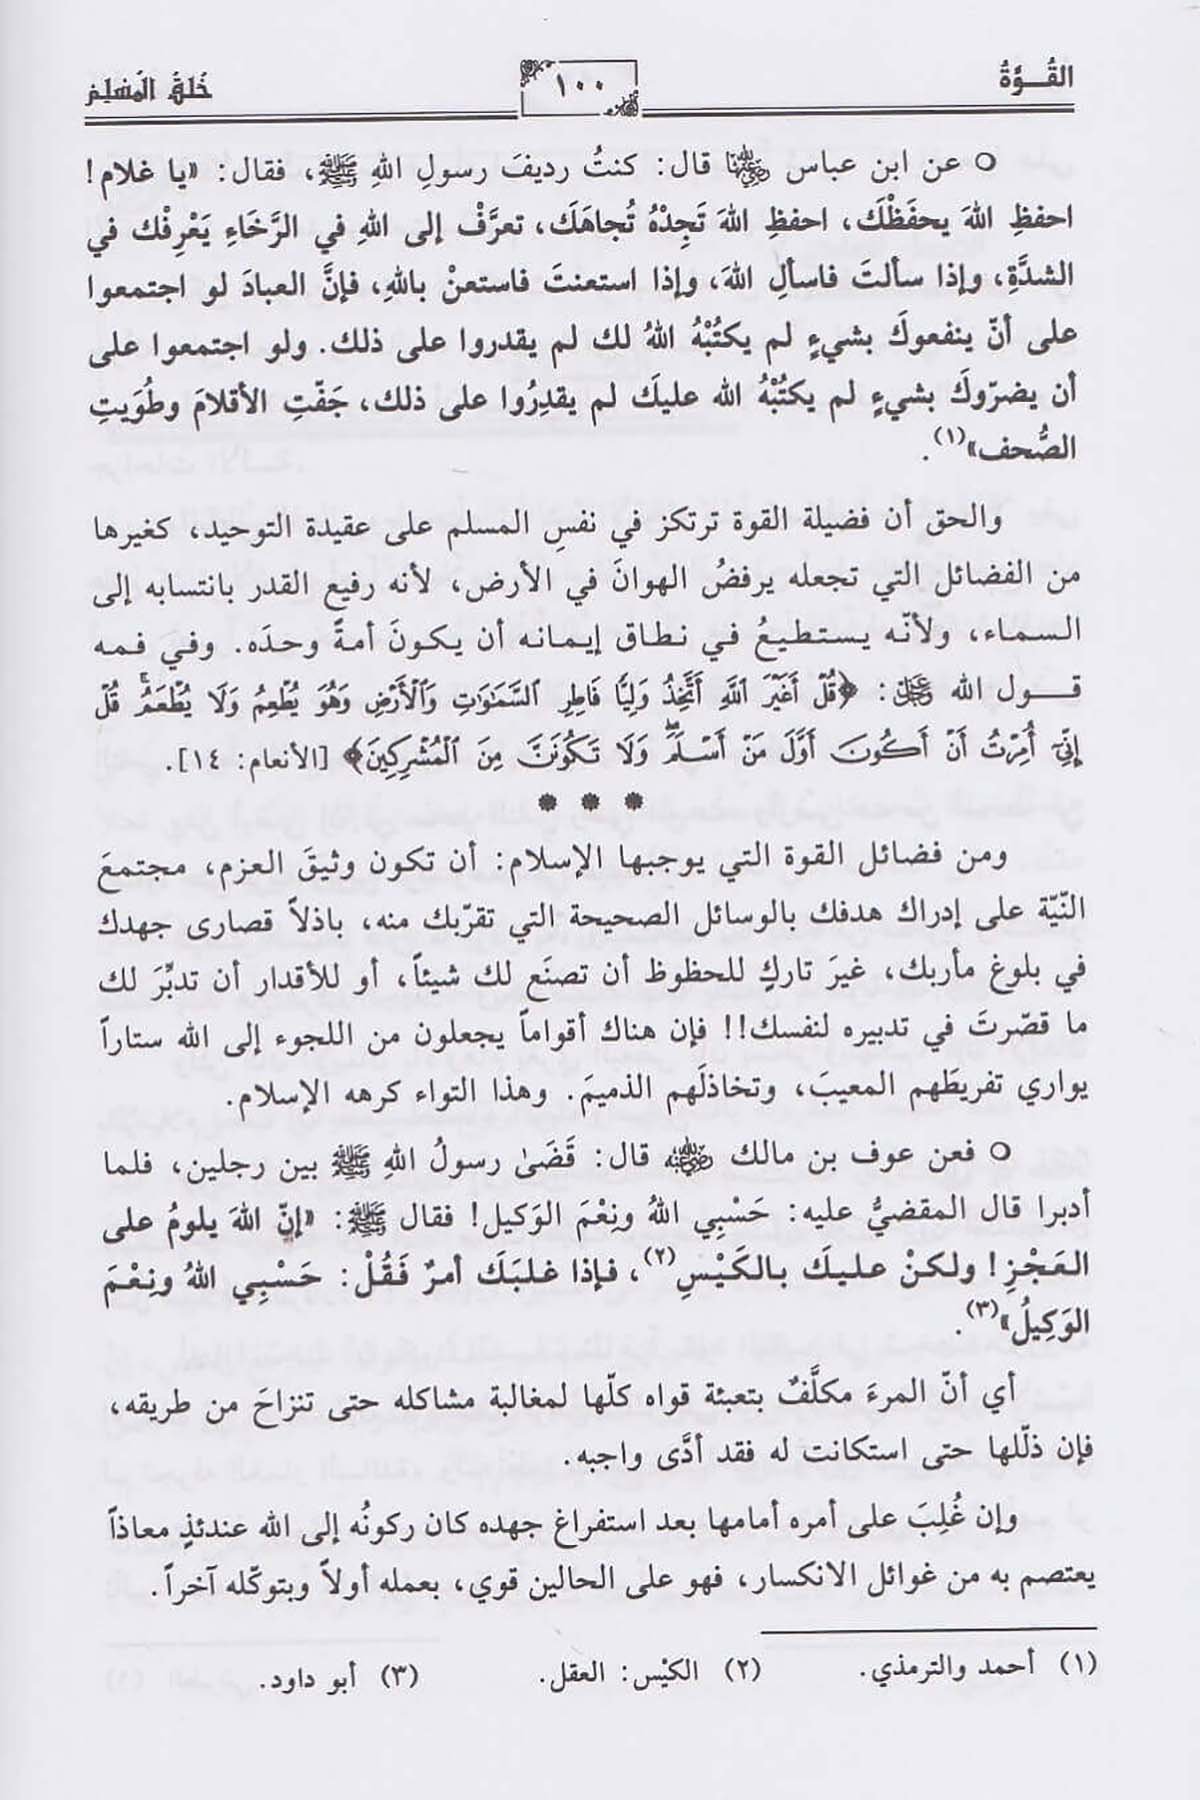 القُــوَّةُ
١٠٠
خُلُقُ الْمُسْلِمِ
○ عن ابن عباس رضي الله عنهما قال: كنتُ رديفَ رسولِ اللهِ ﷺ، فقال: «يا غلام!
احفظِ اللهَ يحفَظْك، احفظِ اللهَ تَجِدْهُ تُجاهَكَ، تعرَّفْ إلى اللهِ في الرَّخَاءِ يَعْرِفْك في
الشدَّةِ، وإذا سألتَ فاسألِ اللهَ، وإذا استعنتَ فاستعنْ باللهِ، فإنَّ العبادَ لو اجتمعوا
على أنّ ينفعوكَ بشيءٍ لم يكتُبْهُ اللهُ لك لم يقدروا على ذلك. ولو اجتمعوا على
أن يضرّوكَ بشيءٍ لم يكتُبْهُ الله عليكَ لم يقدِرُوا على ذلك، جَفّتِ الأقلامَ وطُوَيتِ
الصُّحف»(١).
والحق أن فضيلة القوة ترتكز في نفسِ المسلم على عقيدة التوحيد، كغيرها
من الفضائل التي تجعله يرفضُ الهوانَ في الأرض، لأنه رفيع القدر بانتسابه إلى
السماء، ولأنّه يستطيعُ في نطاق إيمانه أن يكونَ أمةً وحدَه. وفي فمه
قــول الله ﷻ: ﴿قُلْ أَغَيْرَ ٱللَّهِ أَتَّخِذُ وَلِيًّا فَاطِرِ ٱلسَّمَٰوَٰتِ وَٱلْأَرْضِ وَهُوَ يُطْعِمُ وَلَا يُطْعَمُ ۗ قُلْ
إِنِّيٓ أُمِرْتُ أَنْ أَكُونَ أَوَّلَ مَنْ أَسْلَمَ ۖ وَلَا تَكُونَنَّ مِنَ ٱلْمُشْرِكِينَ﴾ [الأنعام: ١٤].
* * *
ومن فضائل القوة التي يوجبها الإسلام: أن تكون وثيقَ العزم، مجتمعَ
النّيّة على إدراك هدفك بالوسائل الصحيحة التي تقرّبك منه، باذلاً قصارى جهدك
في بلوغ مأربك، غيرَ تاركٍ للحظوظ أن تصنَع لك شيئاً، أو للأقدار أن تدبِّرَ لك
ما قصّرتَ في تدبيره لنفسك!! فإن هناك أقواماً يجعلون من اللجوء إلى الله ستاراً
يواري تفريطَهم المعيبَ، وتخاذلَهم الذميمَ. وهذا التواء كرهه الإسلام.
○ فعن عوف بن مالك رضي الله عنه قال: قَضَىٰ رسولُ اللهِ ﷺ بين رجلين، فلما
أدبرا قال المقضيُّ عليه: حَسْبِي اللهُ ونِعْمَ الوَكيل! فقال ﷺ: «إنّ اللهَ يلومُ على
العَجْزِ! ولكنْ عليكَ بالكَيْسِ(٢)، فإذا غلبَكَ أمرٌ فَقُلْ: حَسْبِي اللهُ ونِعْمَ
الوَكِيلُ»(٣).
أي أنّ المرءَ مكلَّفٌ بتعبئة قواه كلّها لمغالبة مشاكله حتى تنزاحَ من طريقه،
فإن ذلّلها حتى استكانت له فقد أدَّى واجبه.
وإن غُلِبَ على أمره أمامها بعد استفراغ جهده كان ركونُه إلى الله عندئذٍ معاذاً
يعتصم به من غوائل الانكسار، فهو على الحالين قوي، بعمله أولاً وبتوكّله آخراً.
(١) أحمد والترمذي. (٢) الكَيْس: العقل. (٣) أبو داود.